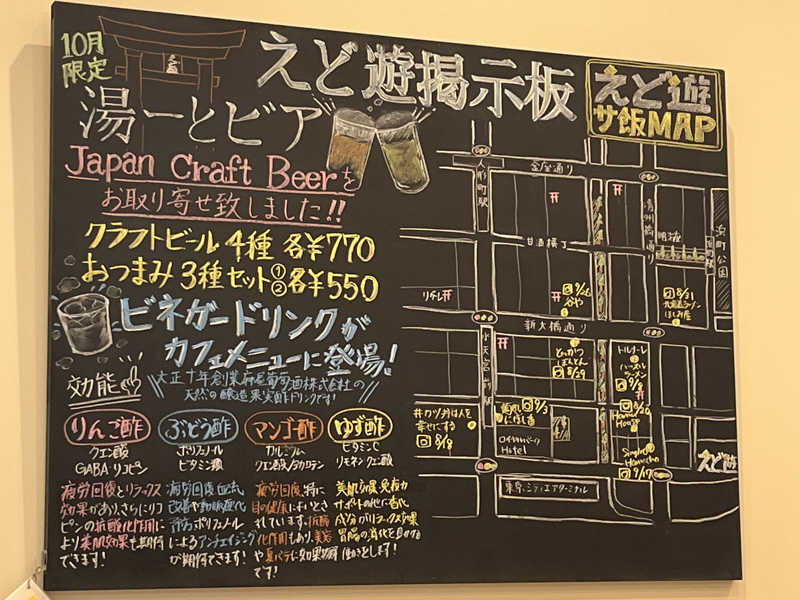 10月
限定
えど遊掲示板
湯ーとビア
Japan Craft Beerを
お取り寄せ致しました!!
クラフトビール4種 各¥770
おつまみ 3種セット①② 各¥550
ビネガードリンクが
カフェメニューに登場!
効能
大正十年創業
株式会社の
天然の醸造果実酢ドリンクです!
りんご酢
クエン酸
GABA リコピン
疲労回復とリラックス
効果があり、さらにリコ
ピンの抗酸化作用に
より美肌効果も期待
できます!
ぶどう酢
ポリフェノール
ビタミン類
疲労回復、血流
改善や動脈硬化
予防、ポリフェノール
によるアンチエイジング
が期待できます!
マンゴ酢
カルシウム
クエン酸/βカロテン
疲労回復、特に
目の健康に良いとさ
れています。抗酸
化作用もあり、美容
や夏バテに効果を発揮
です!
ゆず酢
ビタミンC
リモネン クエン酸
美肌効果、免疫力
サポートの他に香化
成分がリラックス効果
胃腸の消化を助ける
働きをします!
えど遊
サ飯MAP
金座通り
人形町駅
清洲橋通り
明治座
浜町駅
浜町公園
甘酒横丁
新大橋通り
水天宮前駅
谷や
8/31
とんかつ
8/29
トルナーレ
ラーメン
9/3
9/3
8/20
Hama
House
井カツ丼は人を
幸せにする
8/18
ロイヤルパーク
Hotel
Single O
Hamacho
9/17
えど遊
東京シティエアターミナル